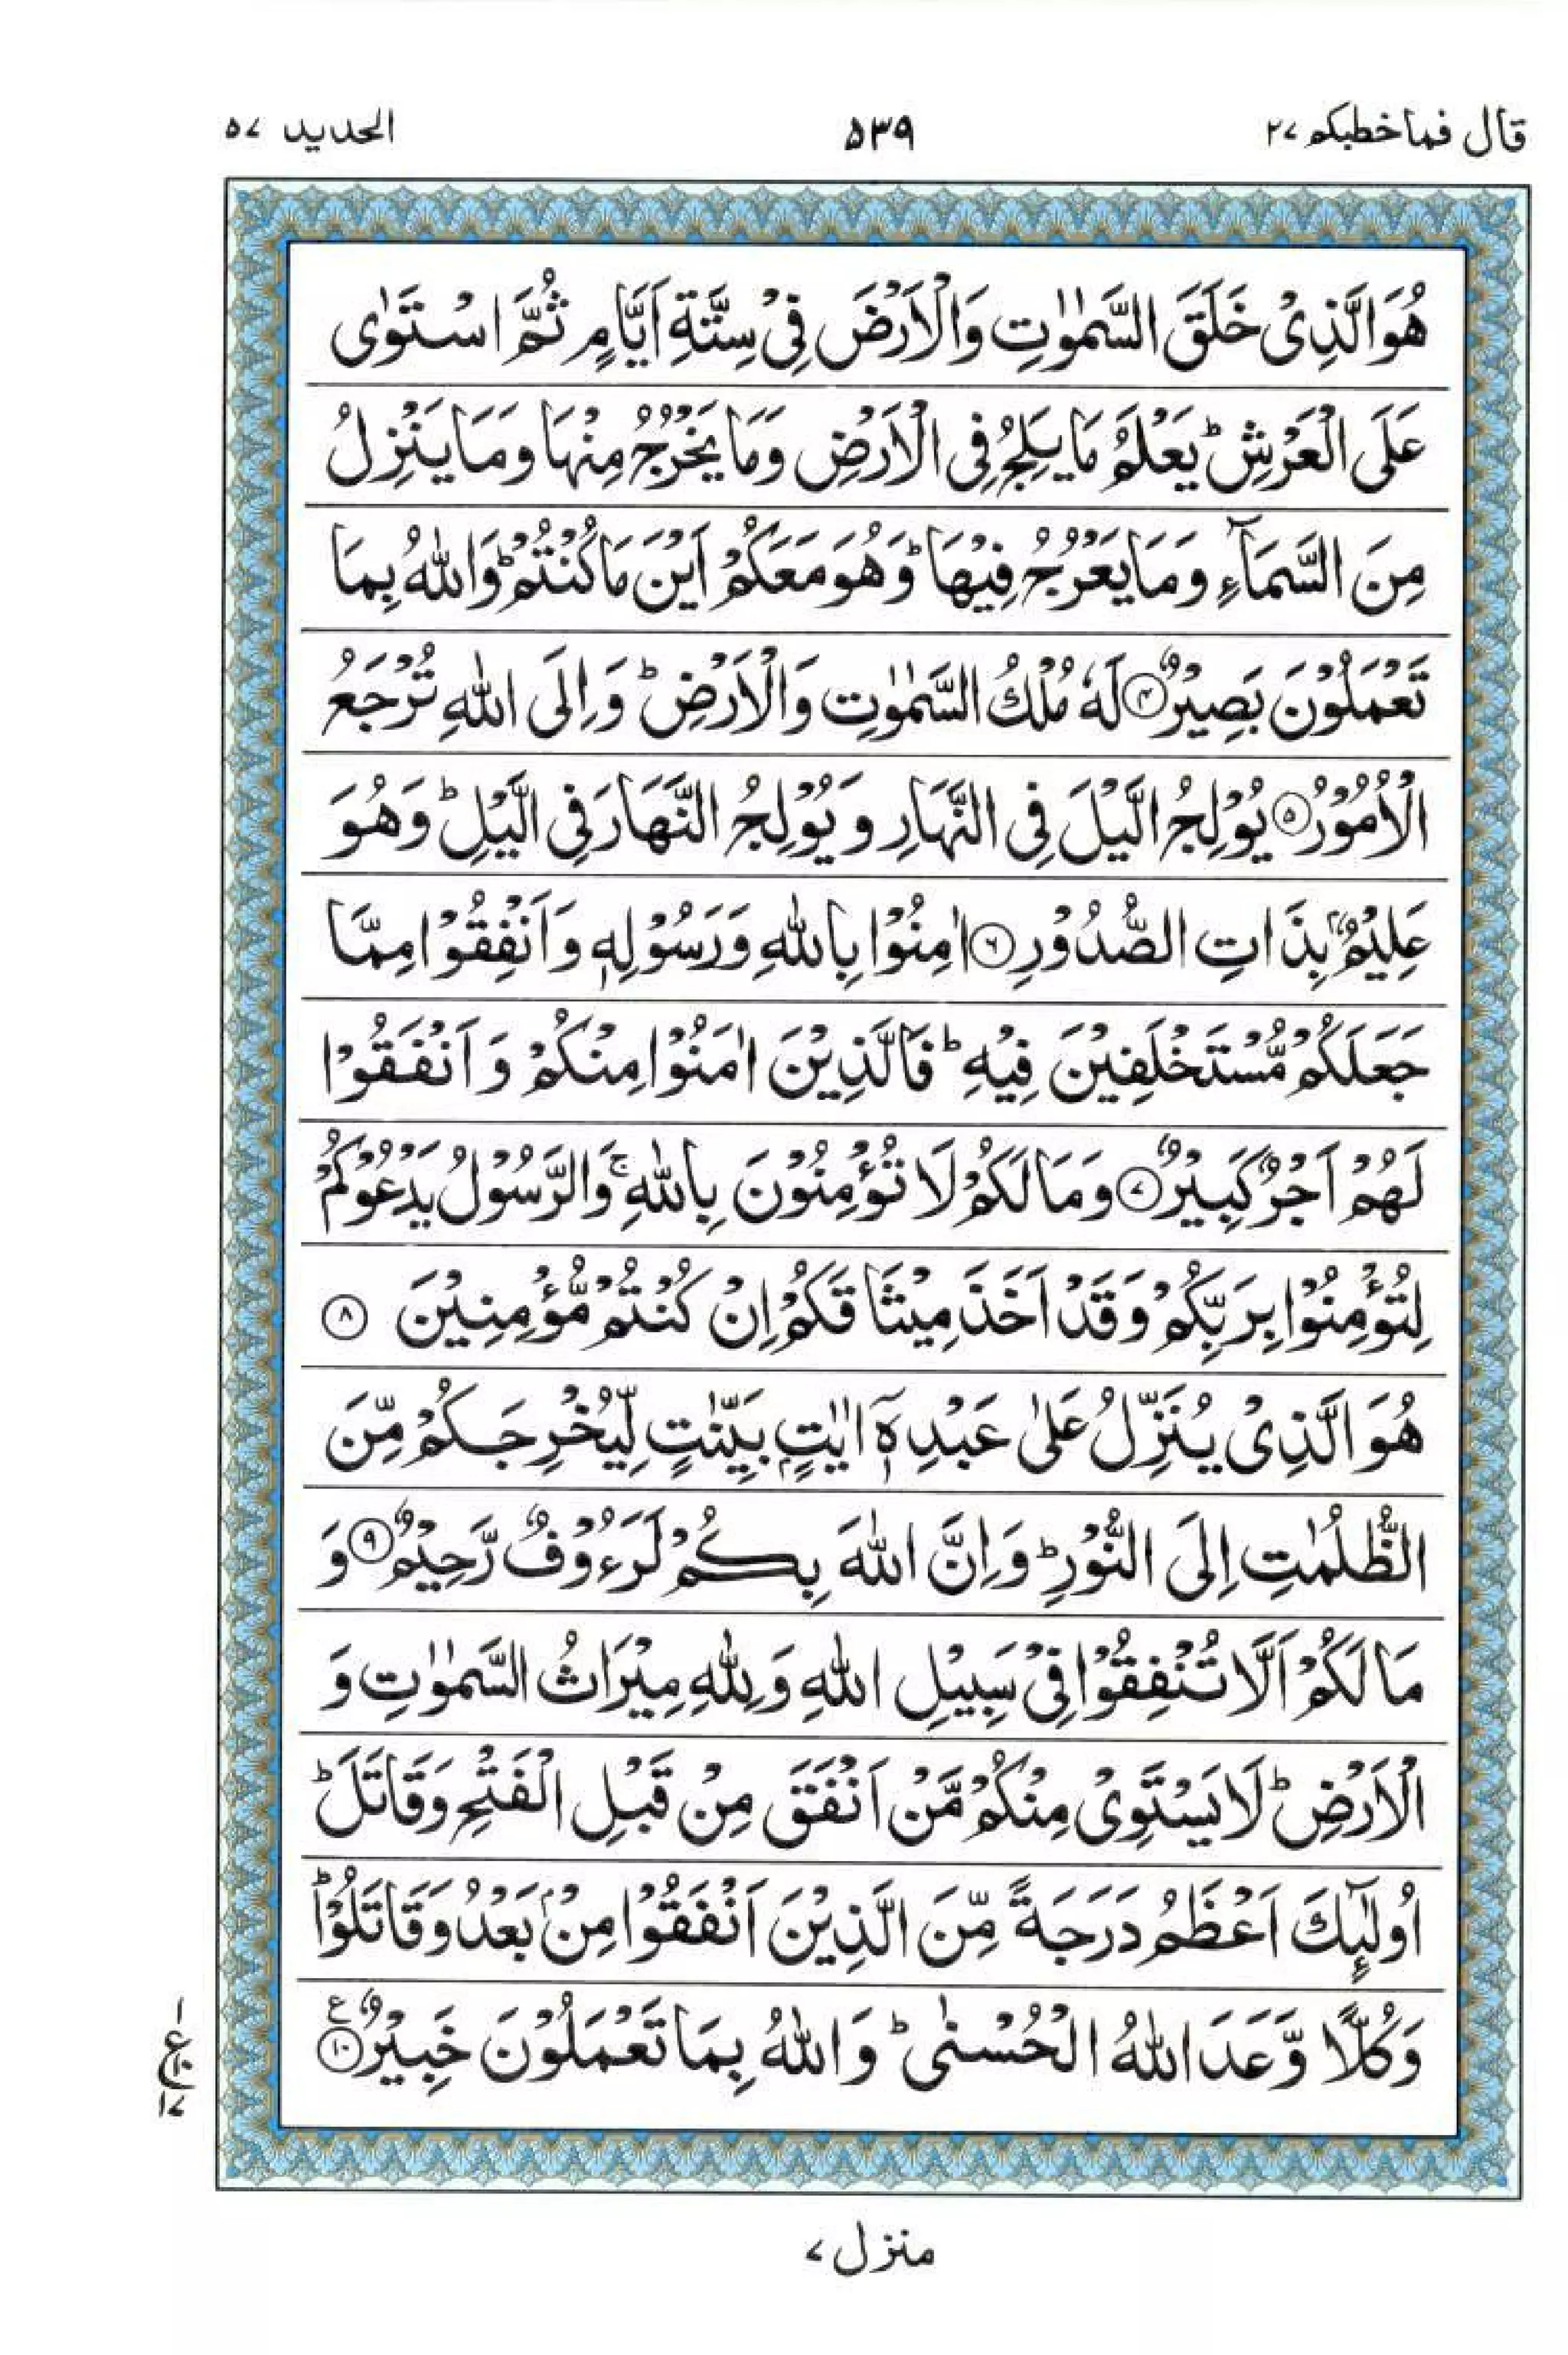 قال فما خطبکم ۲۷
۵۳۹
الحدید ۵۷
هُوَ الَّذِیْ خَلَقَ السَّمٰوٰتِ وَالْاَرْضَ فِیْ سِتَّةِ اَیَّامٍ ثُمَّ اسْتَوٰی
عَلَی الْعَرْشِ ؕ یَعْلَمُ مَا یَلِجُ فِی الْاَرْضِ وَمَا یَخْرُجُ مِنْهَا وَمَا یَنْزِلُ
مِنَ السَّمَآءِ وَمَا یَعْرُجُ فِیْهَا ؕ وَهُوَ مَعَكُمْ اَیْنَ مَا كُنْتُمْ ؕ وَاللّٰهُ بِمَا
تَعْمَلُوْنَ بَصِیْرٌ ۴ لَهٗ مُلْكُ السَّمٰوٰتِ وَالْاَرْضِ ؕ وَاِلَی اللّٰهِ تُرْجَعُ
الْاُمُوْرُ ۵ یُوْلِجُ الَّیْلَ فِی النَّهَارِ وَیُوْلِجُ النَّهَارَ فِی الَّیْلِ ؕ وَهُوَ
عَلِیْمٌۢ بِذَاتِ الصُّدُوْرِ ۶ اٰمِنُوْا بِاللّٰهِ وَرَسُوْلِهٖ وَاَنْفِقُوْا مِمَّا
جَعَلَكُمْ مُّسْتَخْلَفِیْنَ فِیْهِ ؕ فَالَّذِیْنَ اٰمَنُوْا مِنْكُمْ وَاَنْفَقُوْا
لَهُمْ اَجْرٌ كَبِیْرٌ ۷ وَمَا لَكُمْ لَا تُؤْمِنُوْنَ بِاللّٰهِ ۚ وَالرَّسُوْلُ یَدْعُوْكُمْ
لِتُؤْمِنُوْا بِرَبِّكُمْ وَقَدْ اَخَذَ مِیْثَاقَكُمْ اِنْ كُنْتُمْ مُّؤْمِنِیْنَ ۸
هُوَ الَّذِیْ یُنَزِّلُ عَلٰی عَبْدِهٖۤ اٰیٰتٍۭ بَیِّنٰتٍ لِّیُخْرِجَكُمْ مِّنَ
الظُّلُمٰتِ اِلَی النُّوْرِ ؕ وَاِنَّ اللّٰهَ بِكُمْ لَرَءُوْفٌ رَّحِیْمٌ ۹ وَ
مَا لَكُمْ اَلَّا تُنْفِقُوْا فِیْ سَبِیْلِ اللّٰهِ وَلِلّٰهِ مِیْرَاثُ السَّمٰوٰتِ وَ
الْاَرْضِ ؕ لَا یَسْتَوِیْ مِنْكُمْ مَّنْ اَنْفَقَ مِنْ قَبْلِ الْفَتْحِ وَقَاتَلَ ؕ
اُولٰٓىِٕكَ اَعْظَمُ دَرَجَةً مِّنَ الَّذِیْنَ اَنْفَقُوْا مِنْۢ بَعْدُ وَقَاتَلُوْا ؕ
وَكُلًّا وَّعَدَ اللّٰهُ الْحُسْنٰی ؕ وَاللّٰهُ بِمَا تَعْمَلُوْنَ خَبِیْرٌ ۱۰ ع
۱
ع۱۰
۱۷
منزل ۷